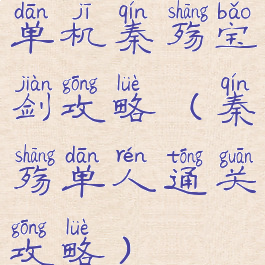 dān jī qín shāng bǎo
单机秦殇宝
jiàn gōng lüè qín
剑攻略（秦
shāng dān rén tōng guān
殇单人通关
gōng lüè
攻略）